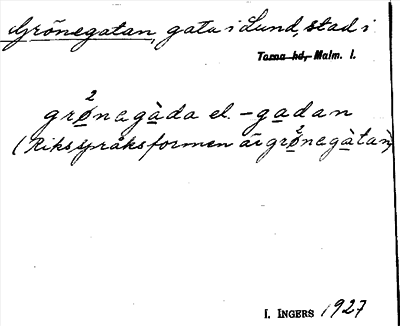 Grönegatan, gata i Lund, stad i
Torna hd, Malm. l.
2
grønagàda el. -gadan
(Riksspråksformen är grø²negàtan)
I. INGERS 1927